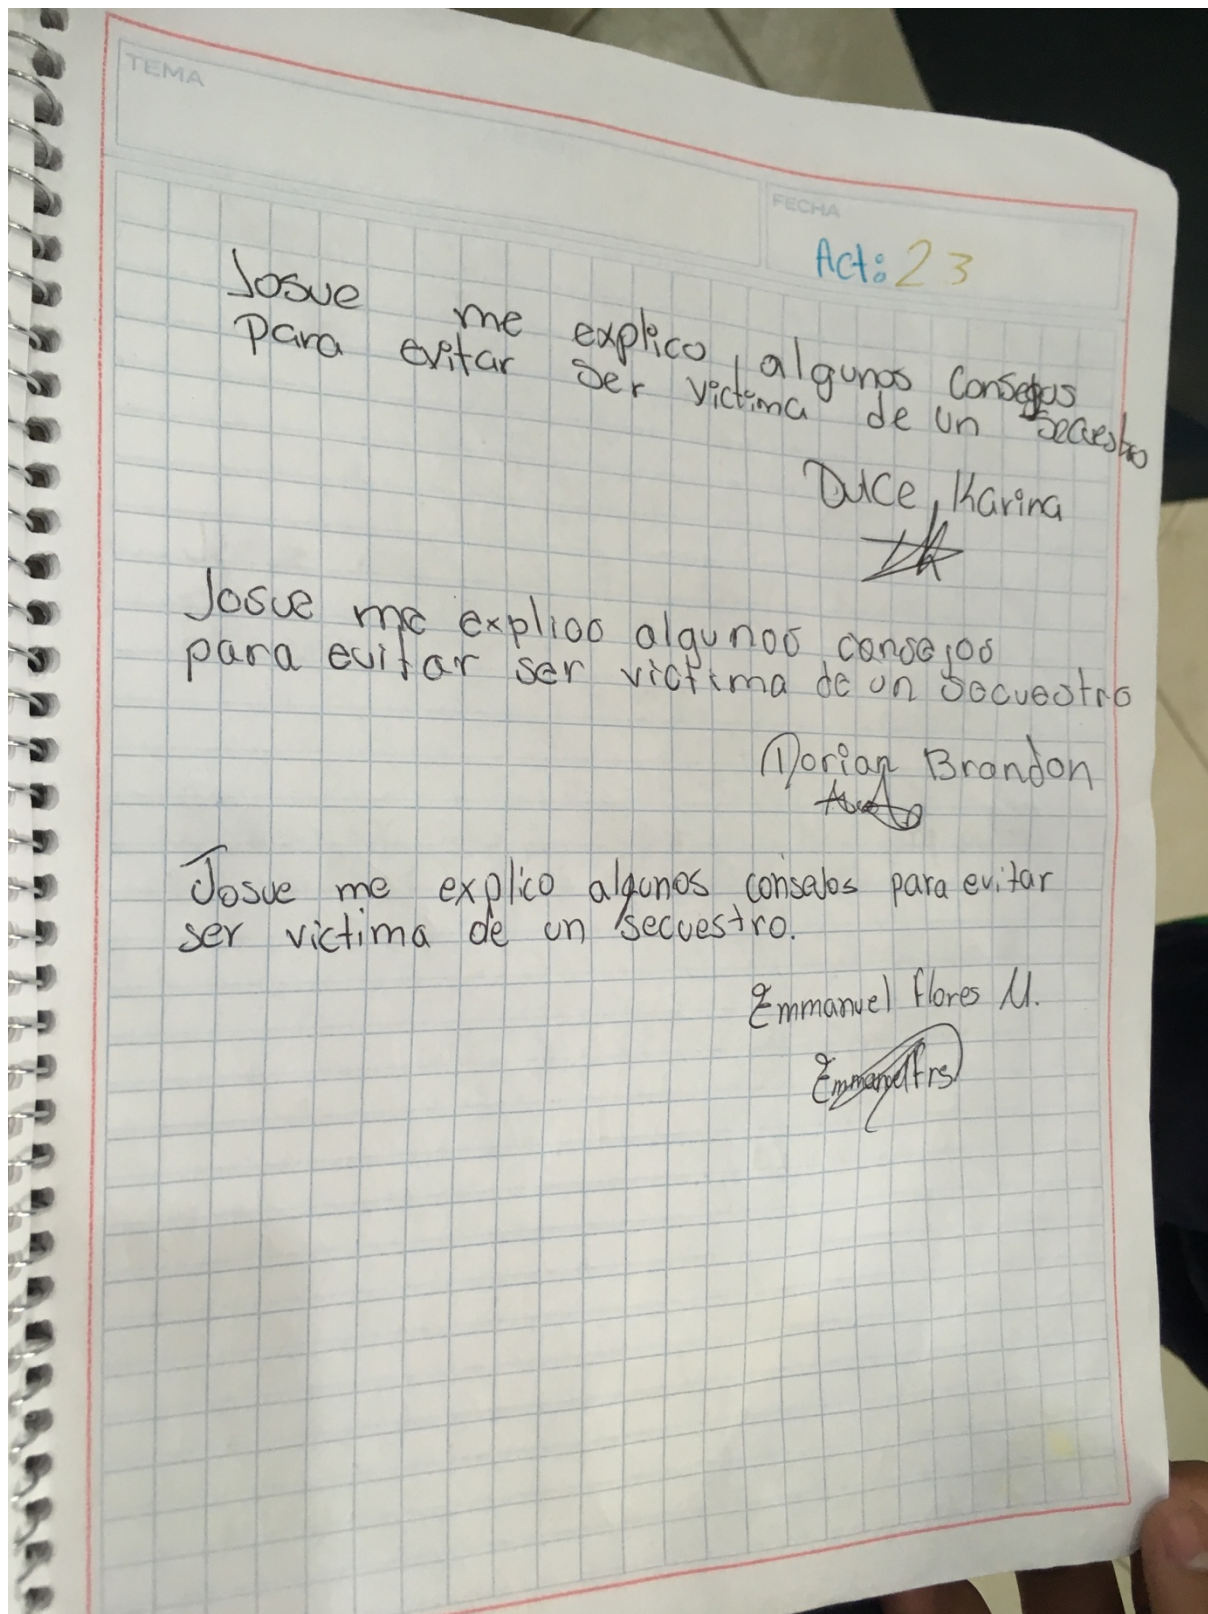 TEMA
FECHA
Act: 23
Josue me explico algunos consejos
para evitar ser victima de un secuestro
Dulce Karina
Josue me explico algunos consejos
para evitar ser victima de un secuestro
Dorian Brandon
Josue me explico algunos consejos para evitar
ser victima de un secuestro.
Emmanuel flores M.